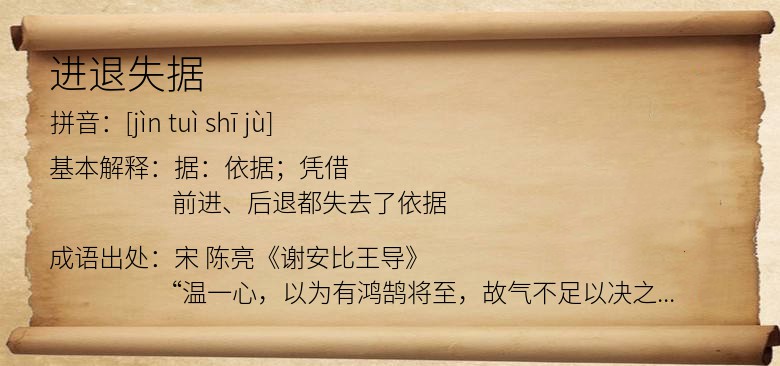 进退失据
拼音：[jìn tuì shī jù]
基本解释：据：依据；凭借
前进、后退都失去了依据
成语出处：宋 陈亮《谢安比王导》
“温一心，以为有鸿鹄将至，故气不足以决之...